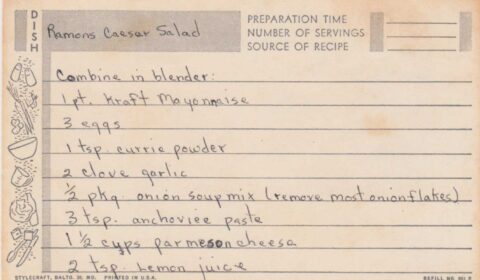 DISH
Ramons Caesar Salad
PREPARATION TIME
NUMBER OF SERVINGS
SOURCE OF RECIPE
Combine in blender:
1 pt. Kraft Mayonnaise
3 eggs
1 tsp. currie powder
2 clove garlic
½ pkg. onion soup mix (remove most onion flakes)
3 tsp. anchoviee paste
1 ½ cups parmeson cheese
2 tsp. Lemon juice
STYLECRAFT, BALTO. 30, MD. PRINTED IN U.S.A. REFILL NO. 801 R